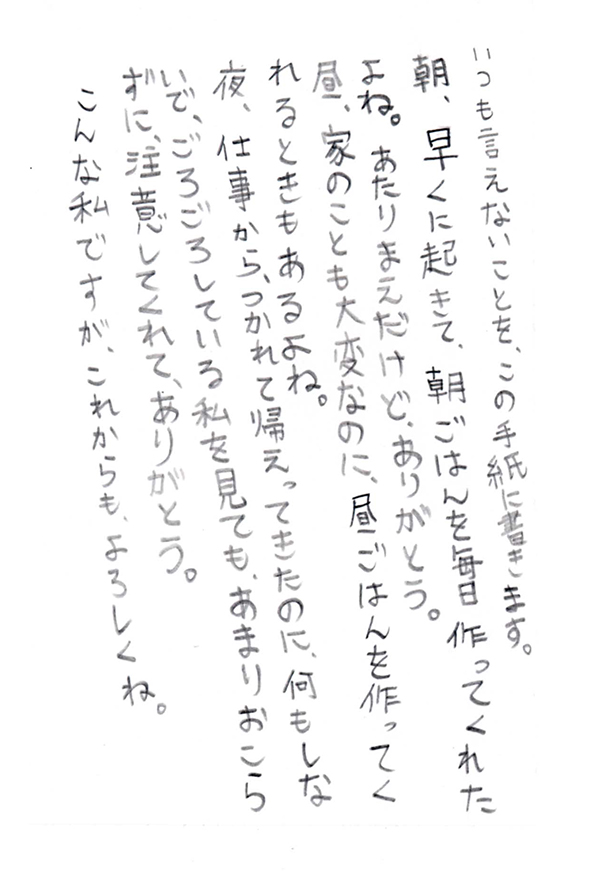 いつも言えないことを、この手紙に書きます。
朝、早くに起きて、朝ごはんを毎日作ってくれた
よね。あたりまえだけど、ありがとう。
昼、家のことも大変なのに、昼ごはんを作ってく
れるときもあるよね。
夜、仕事から、つかれて帰えってきたのに、何もしな
いで、ごろごろしている私を見ても、あまりおこら
ずに、注意してくれて、ありがとう。
こんな私ですが、これからも、よろしくね。